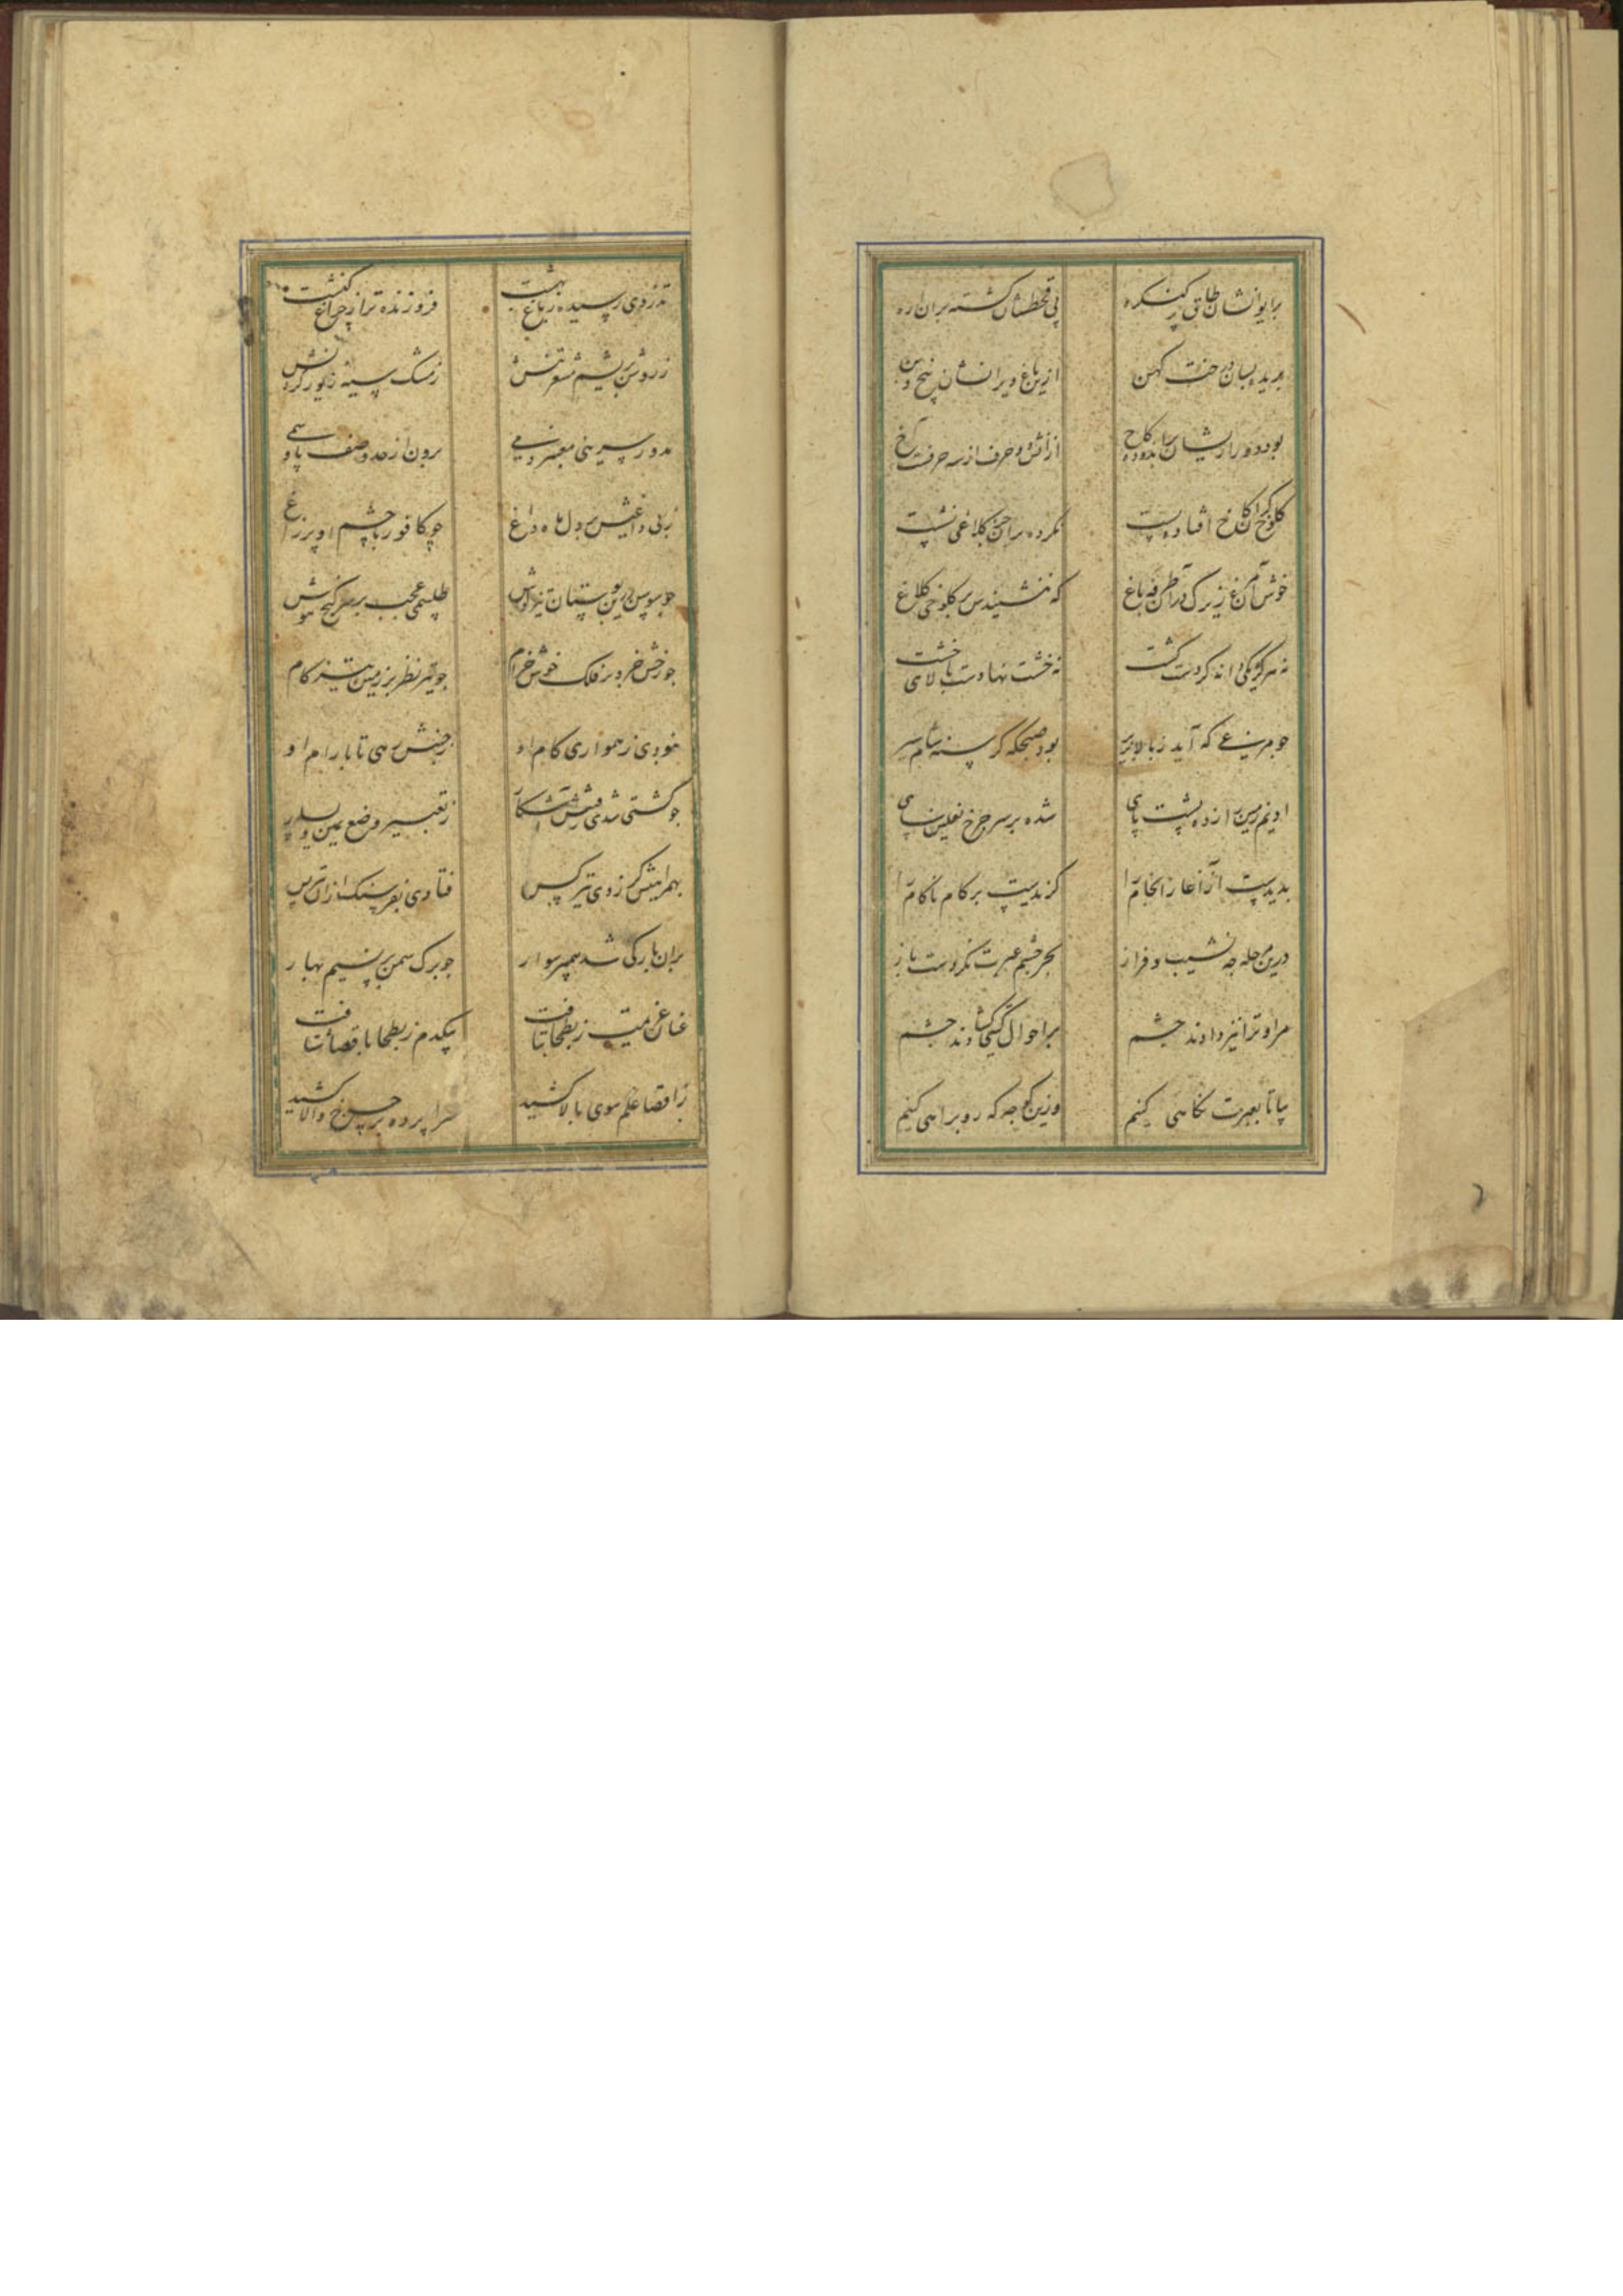 بر ایوانشان طاق پر کنگره
پی قطعشان گشته بران اره
بریده بسان درخت کهن
ازین باغ ویرانشان بیخ و بن
بود دور ازیشان
از آتش دو حرف از سه حرفست آخ
کلوخی کزان کاخ افتاده پست
نکرده بر آن جز کلاغی نشست
خوش آن مرغ زیرک در اطراف باغ
که ننشیند پس بر کلوخی کلاغ
نه هرگز یکی دانه کردست کشت
نه خشتی نهادست بالای خشت
چو مرغی که آید ز بالا بزیر
بود صبحگه گرسنه شام سیر
ادیم زمین را زده پشت پای
شده بر سر چرخ نعلین سای
بدیدست از آغاز انجام را
گزیدست بر کام ناکام را
درین مرحله چه نشیب و فراز
بجز چشم عبرت نکردست باز
مرا و ترا نیز دادند چشم
بر احوال گیتی گشادند چشم
بیا تا بعبرت نگاهی کنیم
وزین کوچه گه رو براهی کنیم
تذروی رسیده ز باغ بهشت
فروزنده تر از چراغ کنشت
ز روشن بریشم مشعر تنش
ز مشک سیه زیور گردنش
مدور سرینی معنبر دمی
برون از حد وصف پا و سمی
ز بی داغیش بر دل ماه داغ
چو کافور با چشم او پر زاغ
چو سوسن درین بوستان تیز گوش
طلسمی عجب بر سر گنج هوش
چو رخش خرد بر فلک خوش خرام
چو تیر نظر بر زمین تیز گام
نبودی ز همواری گام او
ز جنبش رهی تا بآرام او
چو گشتی شدی رفتنش آشکار
ز تغییر وضع یمین و یسار
بهمراهیش گر زدی تیر کس
فتادی بفرسنگ ازان تیر پس
بران بارگی شد پیمبر سوار
چو برگ سمن بر نسیم بهار
عنان عزیمت ز بطحا بتافت
بیکدم ز بطحا باقصا شتافت
ز اقصا علم سوی بالا کشید
سراپرده بر چرخ والا کشید